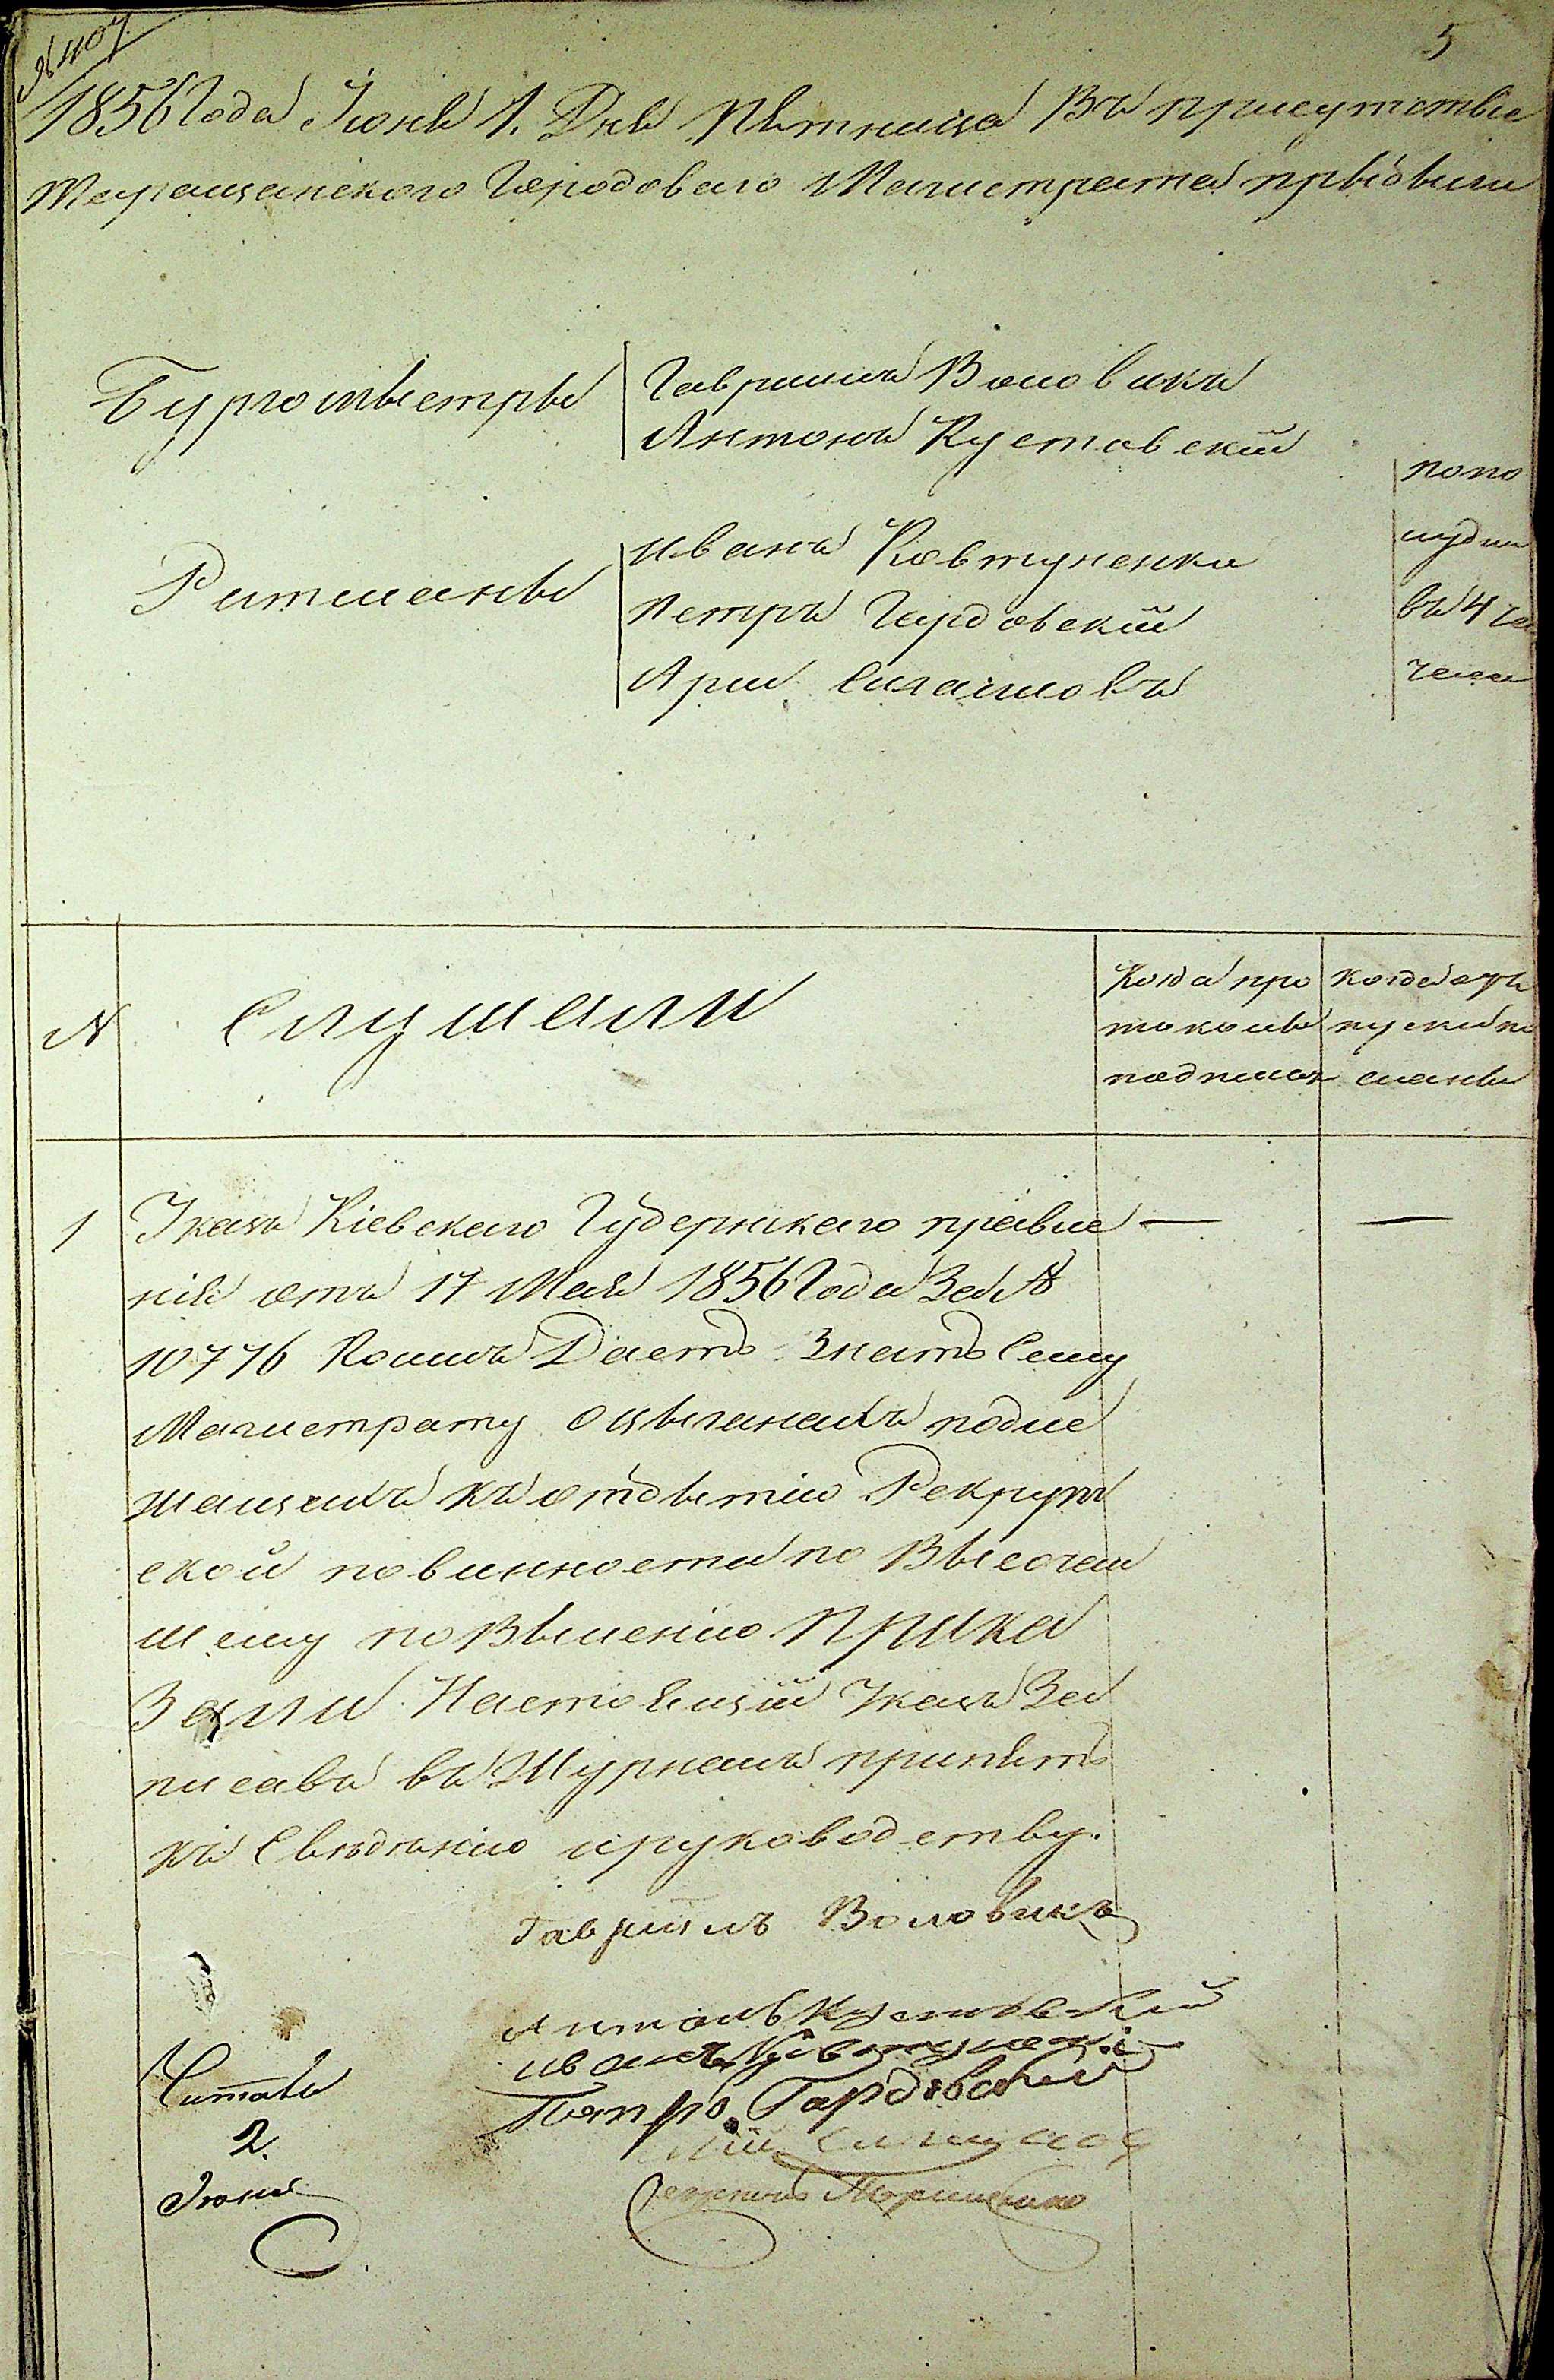 № 407
5
1856 Года Іюня 1. Дня Пятница Въ присутствіе
Таращанского Городоваго Магистрата прыбыли
Бургомыстры
Гаврыилъ Воловикъ
Антонъ Кустовскій
Ратманы
Иванъ Ковтуненко
Петръ Гардовскій
Арш
попо
лудни
въ 4 ча
часа
N
Слушали
Когда про
токолы
подписан
когда от
пуски по
сланы
1
Указъ Кіевскаго Губернскаго правле
нія отъ 17 Мая 1856 Года За №
10776 Коимъ Даетъ Знать Сему
Магистрату о цыганахъ подле
жащихъ къ отбытію Рекрут
ской повинности по Высочай
шему повѣленію Прика
Зали Настоящій Указъ За
писавъ въ Журналъ принять
къ Свѣдѣнію и руководству.
Гавріилъ Воловикъ
Антонъ Кустовскій
иванъ Ковтуненко
Петро Гардовскій
Читалъ
2.
Іюня